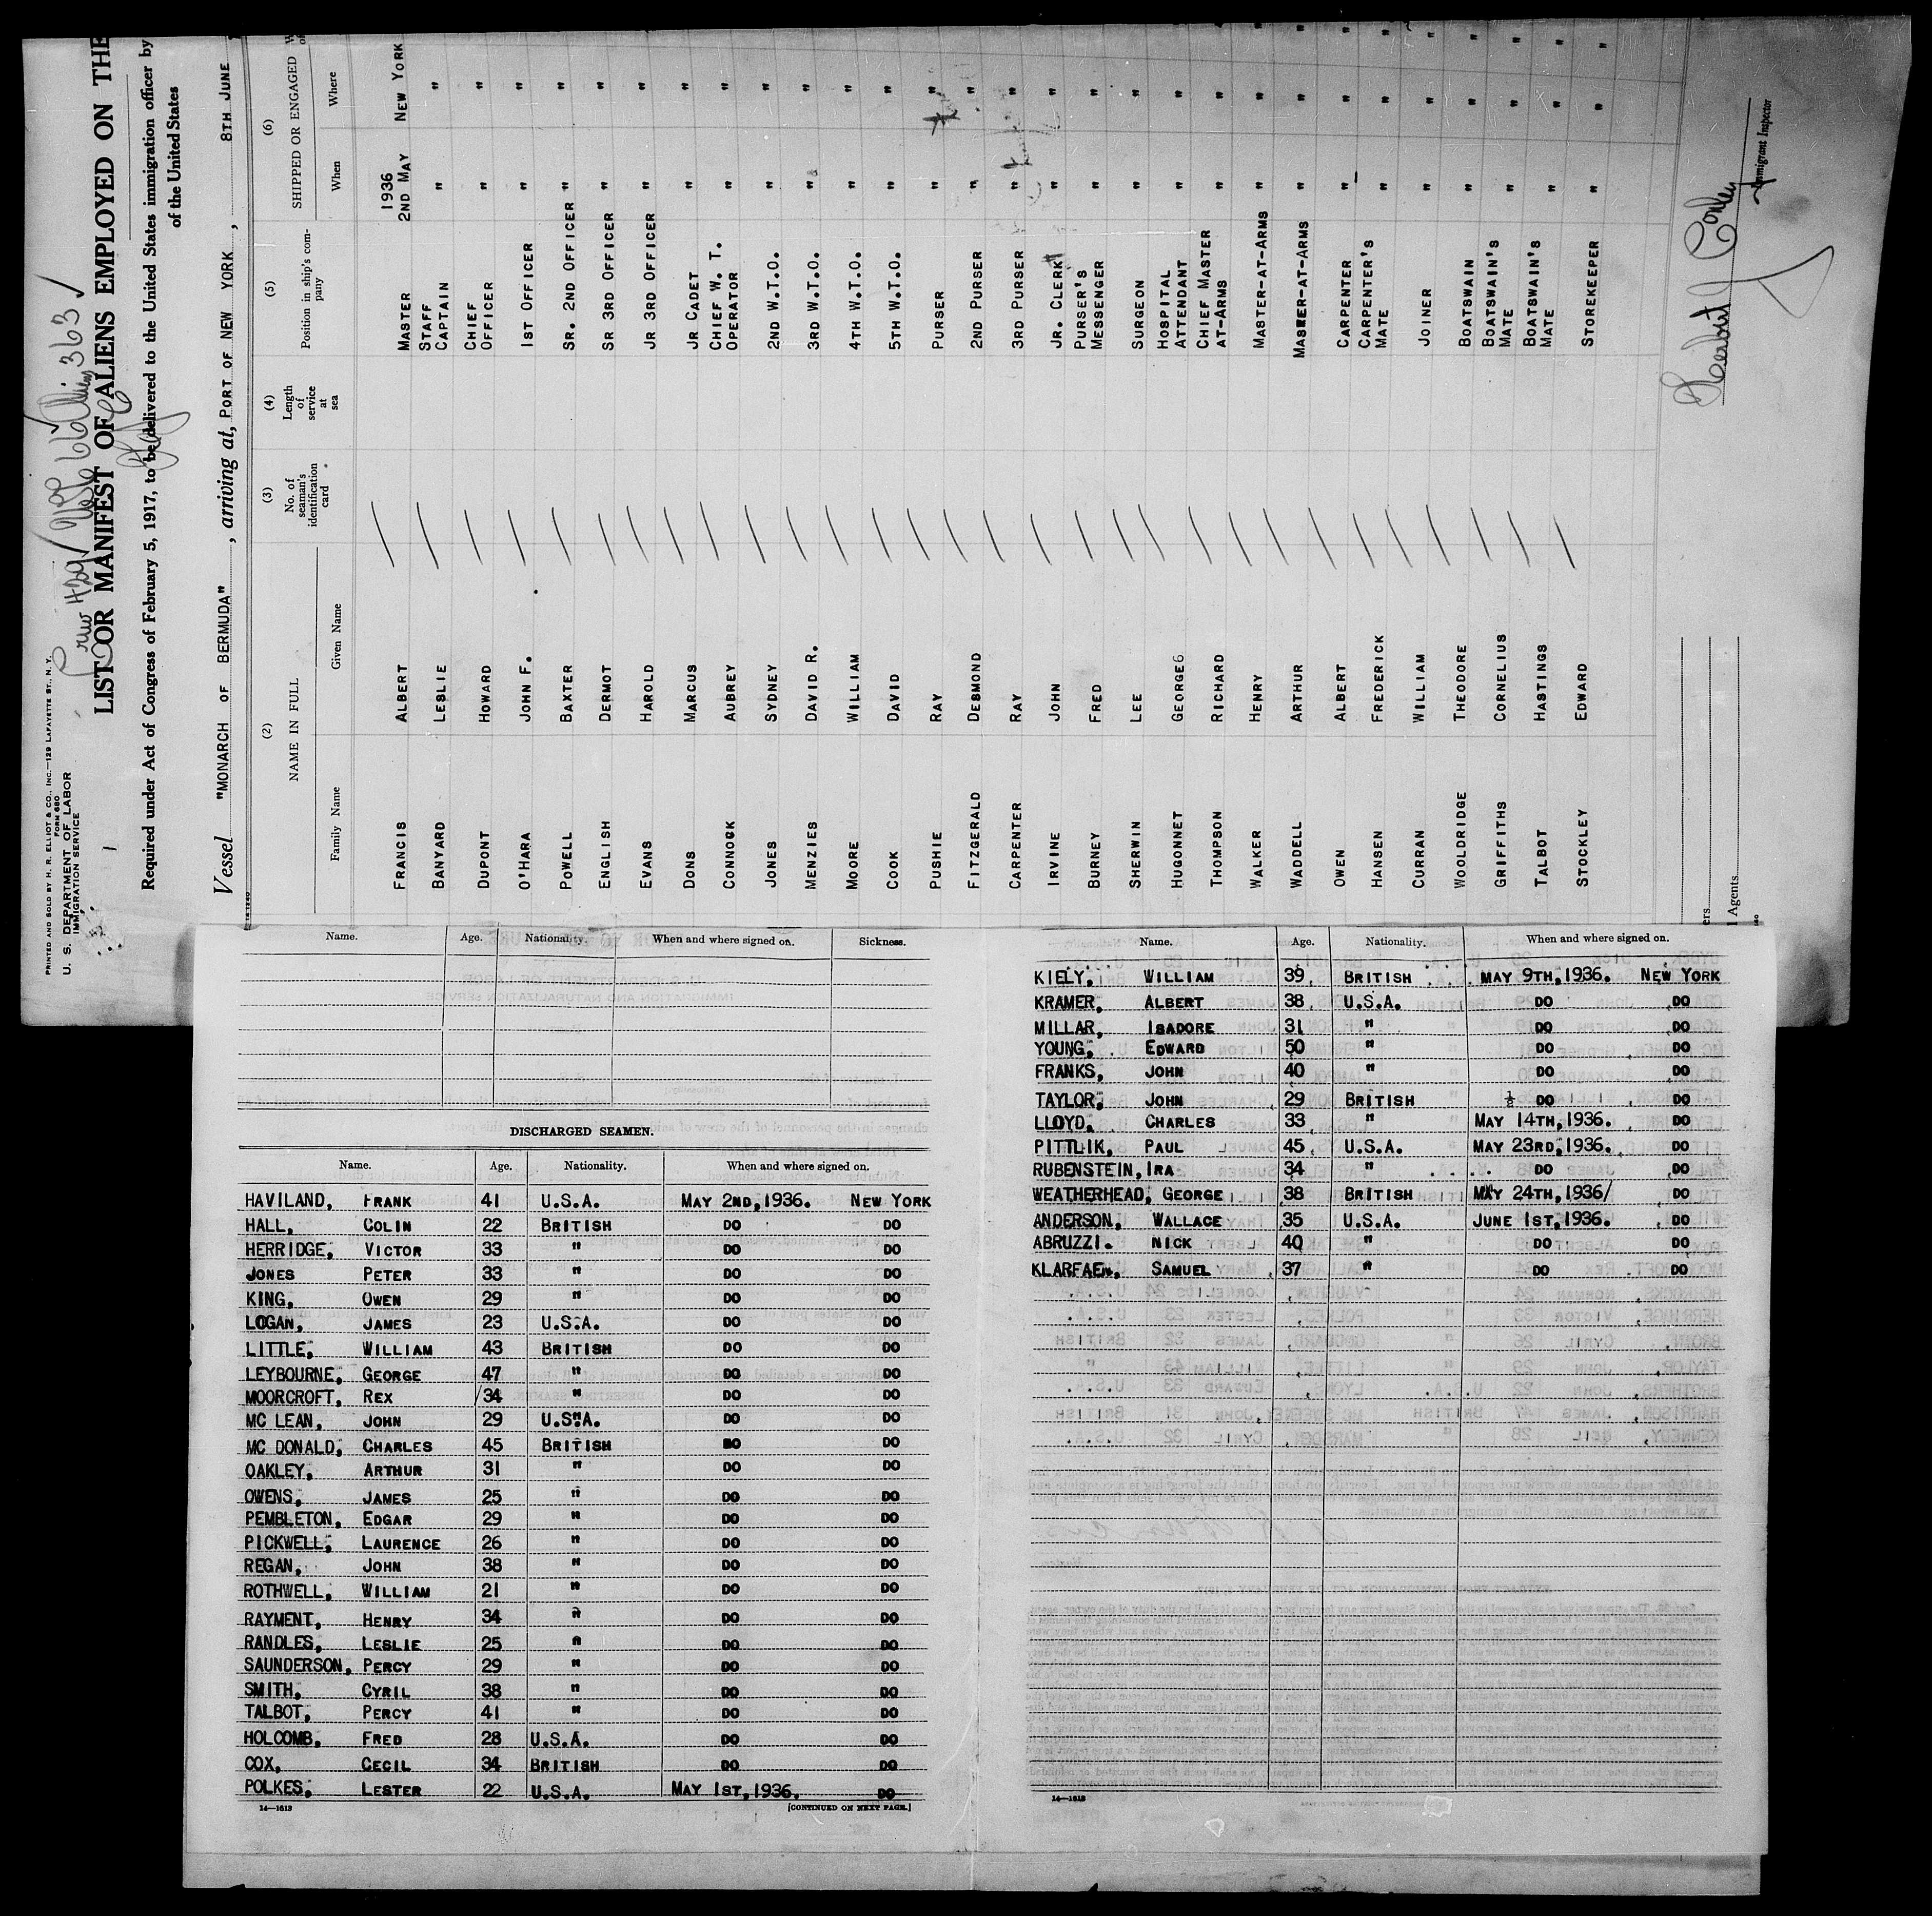 PRINTED AND SOLD BY H. R. ELLIOT & CO., INC.—129 LAFAYETTE ST., N. Y.
FORM 680
U. S. DEPARTMENT OF LABOR
IMMIGRATION SERVICE
1
363
LIST OR MANIFEST OF ALIENS EMPLOYED ON THE
Required under Act of Congress of February 5, 1917, to be delivered to the United States immigration officer by
of the United States
Vessel "MONARCH OF BERMUDA", arriving at, PORT OF NEW YORK, 8TH JUNE
(2) (3) (4) (5) (6)
NAME IN FULL No. of seaman's identification card Length of service at sea Position in ship's company SHIPPED OR ENGAGED
Family Name Given Name When Where
FRANCIS ALBERT MASTER 1936 2ND MAY NEW YORK
BANYARD LESLIE STAFF CAPTAIN " "
DUPONT HOWARD CHIEF OFFICER " "
O'HARA JOHN F. 1ST OFFICER " "
POWELL BAXTER SR. 2ND OFFICER " "
ENGLISH DERMOT SR 3RD OFFICER " "
EVANS HAROLD JR 3RD OFFICER " "
DONS MARCUS JR CADET " "
CONNOCK AUBREY CHIEF W. T. OPERATOR " "
JONES SYDNEY 2ND W.T.O. " "
MENZIES DAVID R. 3RD W.T.O. " "
MOORE WILLIAM 4TH W.T.O. " "
COOK DAVID 5TH W.T.O. " "
PUSHIE RAY PURSER " "
FITZGERALD DESMOND 2ND PURSER " "
CARPENTER RAY 3RD PURSER " "
IRVINE JOHN JR. CLERK " "
BURNEY FRED PURSER'S MESSENGER " "
SHERWIN LEE SURGEON " "
HUGONNET GEORGES HOSPITAL ATTENDANT " "
THOMPSON RICHARD CHIEF MASTER AT-ARMS " "
WALKER HENRY MASTER-AT-ARMS " "
WADDELL ARTHUR MASTER-AT-ARMS " "
OWEN ALBERT CARPENTER " "
HANSEN FREDERICK CARPENTER'S MATE " "
CURRAN WILLIAM JOINER " "
WOOLDRIDGE THEODORE BOATSWAIN " "
GRIFFITHS CORNELIUS BOATSWAIN'S MATE " "
TALBOT HASTINGS BOATSWAIN'S MATE " "
STOCKLEY EDWARD STOREKEEPER " "
Herbert J Conley
Immigrant Inspector
Agents
Name. Age. Nationality. When and where signed on. Sickness.
DISCHARGED SEAMEN.
Name. Age. Nationality. When and where signed on.
HAVILAND, FRANK 41 U.S.A. MAY 2ND, 1936. NEW YORK
HALL, COLIN 22 BRITISH DO DO
HERRIDGE, VICTOR 33 " DO DO
JONES PETER 33 " DO DO
KING, OWEN 29 " DO DO
LOGAN, JAMES 23 U.S.A. DO DO
LITTLE, WILLIAM 43 BRITISH DO DO
LEYBOURNE, GEORGE 47 " DO DO
MOORCROFT, REX 34 " DO DO
MC LEAN, JOHN 29 U.S.A. DO DO
MC DONALD, CHARLES 45 BRITISH DO DO
OAKLEY, ARTHUR 31 " DO DO
OWENS, JAMES 25 " DO DO
PEMBLETON, EDGAR 29 " DO DO
PICKWELL, LAURENCE 26 " DO DO
REGAN, JOHN 38 " DO DO
ROTHWELL, WILLIAM 21 " DO DO
RAYMENT, HENRY 34 " DO DO
RANDLES, LESLIE 25 " DO DO
SAUNDERSON, PERCY 29 " DO DO
SMITH, CYRIL 38 " DO DO
TALBOT, PERCY 41 " DO DO
HOLCOMB, FRED 28 U.S.A. DO DO
COX, CECIL 34 BRITISH DO DO
POLKES, LESTER 22 U.S.A. MAY 1ST, 1936. DO
14—1613 [CONTINUED ON NEXT PAGE.]
Name. Age. Nationality. When and where signed on.
KIELY, WILLIAM 39 BRITISH MAY 9TH, 1936. NEW YORK
KRAMER, ALBERT 38 U.S.A. DO DO
MILLAR, ISADORE 31 " DO DO
YOUNG, EDWARD 50 " DO DO
FRANKS, JOHN 40 " DO DO
TAYLOR, JOHN 29 BRITISH DO DO
LLOYD, CHARLES 33 " MAY 14TH, 1936. DO
PITTLIK, PAUL 45 U.S.A. MAY 23RD, 1936. DO
RUBENSTEIN, IRA 34 " DO DO
WEATHERHEAD, GEORGE 38 BRITISH MAY 24TH, 1936/ DO
ANDERSON, WALLACE 35 U.S.A. JUNE 1ST, 1936. DO
ABRUZZI. NICK 40 " DO DO
KLARFAEN, SAMUEL 37 " DO DO
14—1613